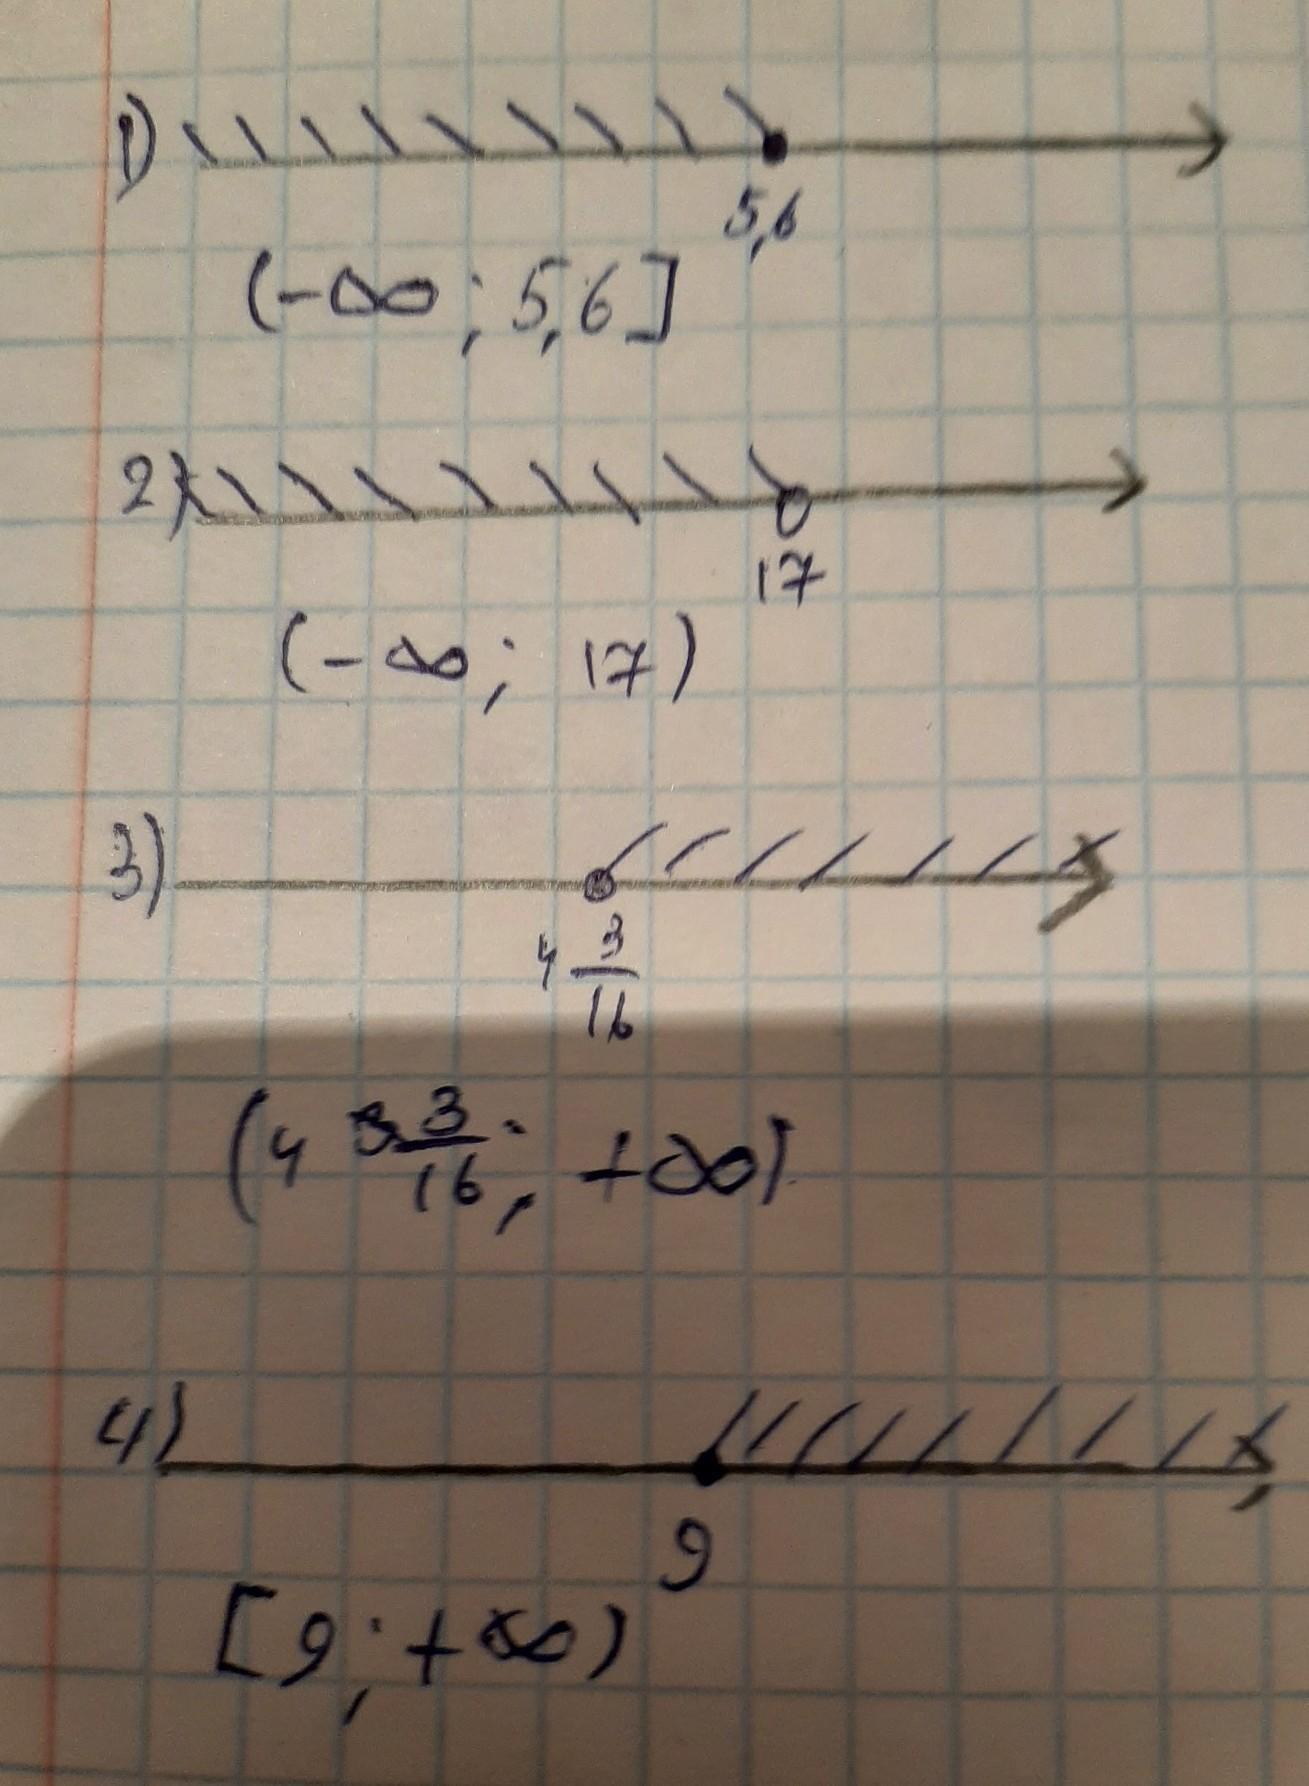 1)
5,6
(-∞; 5,6]
2)
17
(-∞; 17)
3)
4 3/16
(4 3/16; +∞)
4)
9
[9; +∞)